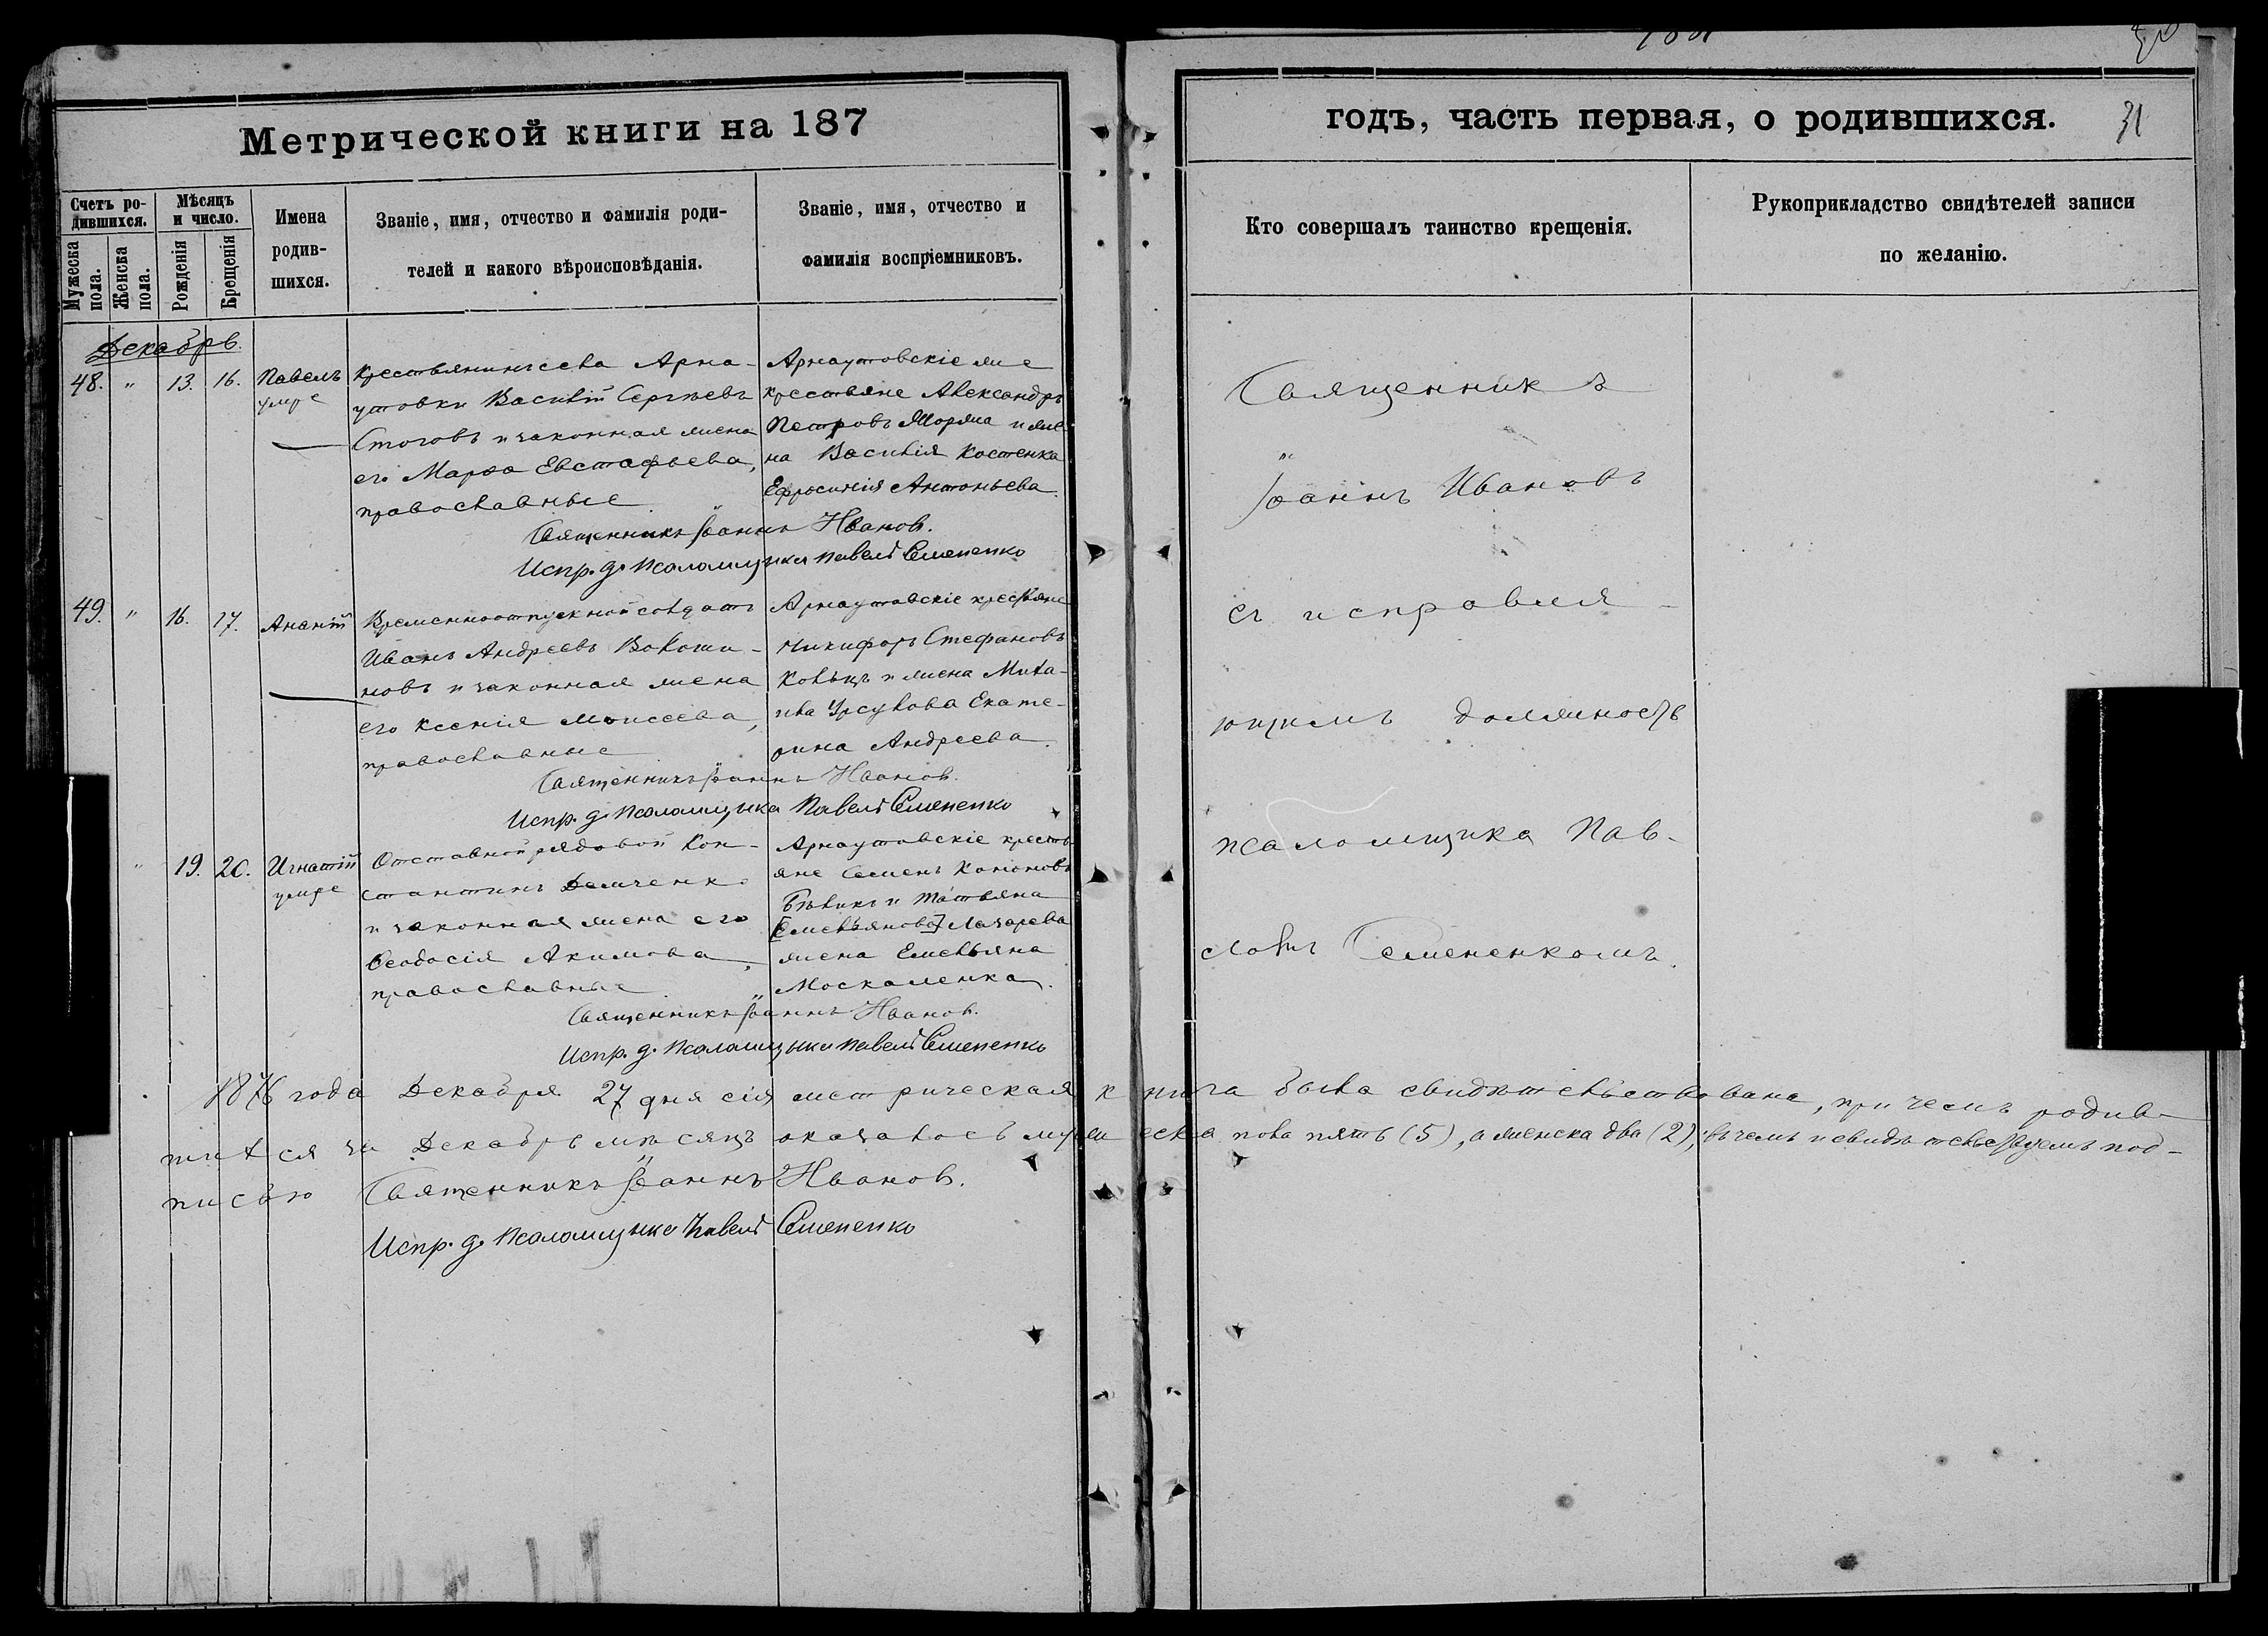 Метрической книги на 187
Счетъ ро-
дившихся.
Мужеска пола.
Женска пола.
Мѣсяцъ
и число.
Рожденія
Крещенія
Имена
родив-
шихся.
Званіе, имя, отчество и фамилія роди-
телей и какого вѣроисповѣданія.
Званіе, имя, отчество и
фамилія воспріемниковъ.
Декабрь.
48. " 13. 16. Павелъ
умре
Крестьянинъ села Арна-
утовки Василій Сергѣевъ
Стоговъ и законная жена
его Марфа Евстафьева,
православные.
Арнаутовскіе же
крестьяне Александръ
Петровъ Шоряа и же-
на Василія Костенка
Ефросинія Антоньева.
Священникъ Іоаннъ Иванов.
Испр. д. псаломщика Павелъ Семененко
49. " 16. 17. Ананій
Временноотпускной солдатъ
Иванъ Андреевъ Волоши-
новъ и законная жена
его Ксенія Моисеева,
православные
Арнаутовскіе крестьяне
Никифоръ Стефановъ
Ковъцъ и жена Миха-
ила Урсулова Екате-
рина Андреева.
Священникъ Іоаннъ Иванов.
Испр. д. псаломщика Павелъ Семененко
" 19. 20. Игнатій
умре
Отставной рядовой Кон-
стантинъ Демченко
и законная жена его
Ѳеодосія Акимова,
православные.
Арнаутовскіе кресть-
яне Семенъ Кононовъ
Бѣликъ и Татьяна
[Емельянова] Лазарева
жена Емельяна
Москаленка.
Священникъ Іоаннъ Иванов.
Испр. д. псаломщика Павелъ Семененко
1876 года Декабря 27 дня сія метрическая книга была свидѣтельствована, при чемъ родив-
шихся за Декабрь мѣсяцъ оказалось мужеска пола пять (5), а женска два (2); въ чемъ и свидѣтельствуемъ под-
писью Священникъ Іоаннъ Иванов.
Испр. д. псаломщика Павелъ Семененко
годъ, часть первая, о родившихся.
31
Кто совершалъ таинство крещенія.
Рукоприкладство свидѣтелей записи
по желанію.
Священникъ
Іоаннъ Ивановъ
съ исправля-
ющимъ должность
псаломщика Пав-
ломъ Семененкомъ.